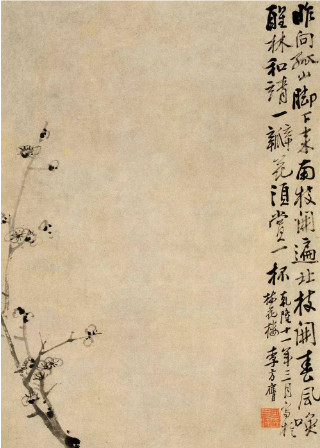 昨向孤山脚下来南枝開遍北枝開春風喚
醒林和靖一瓣花須賞一杯
乾隆十一年三月寫於
梅花楼 李方膺